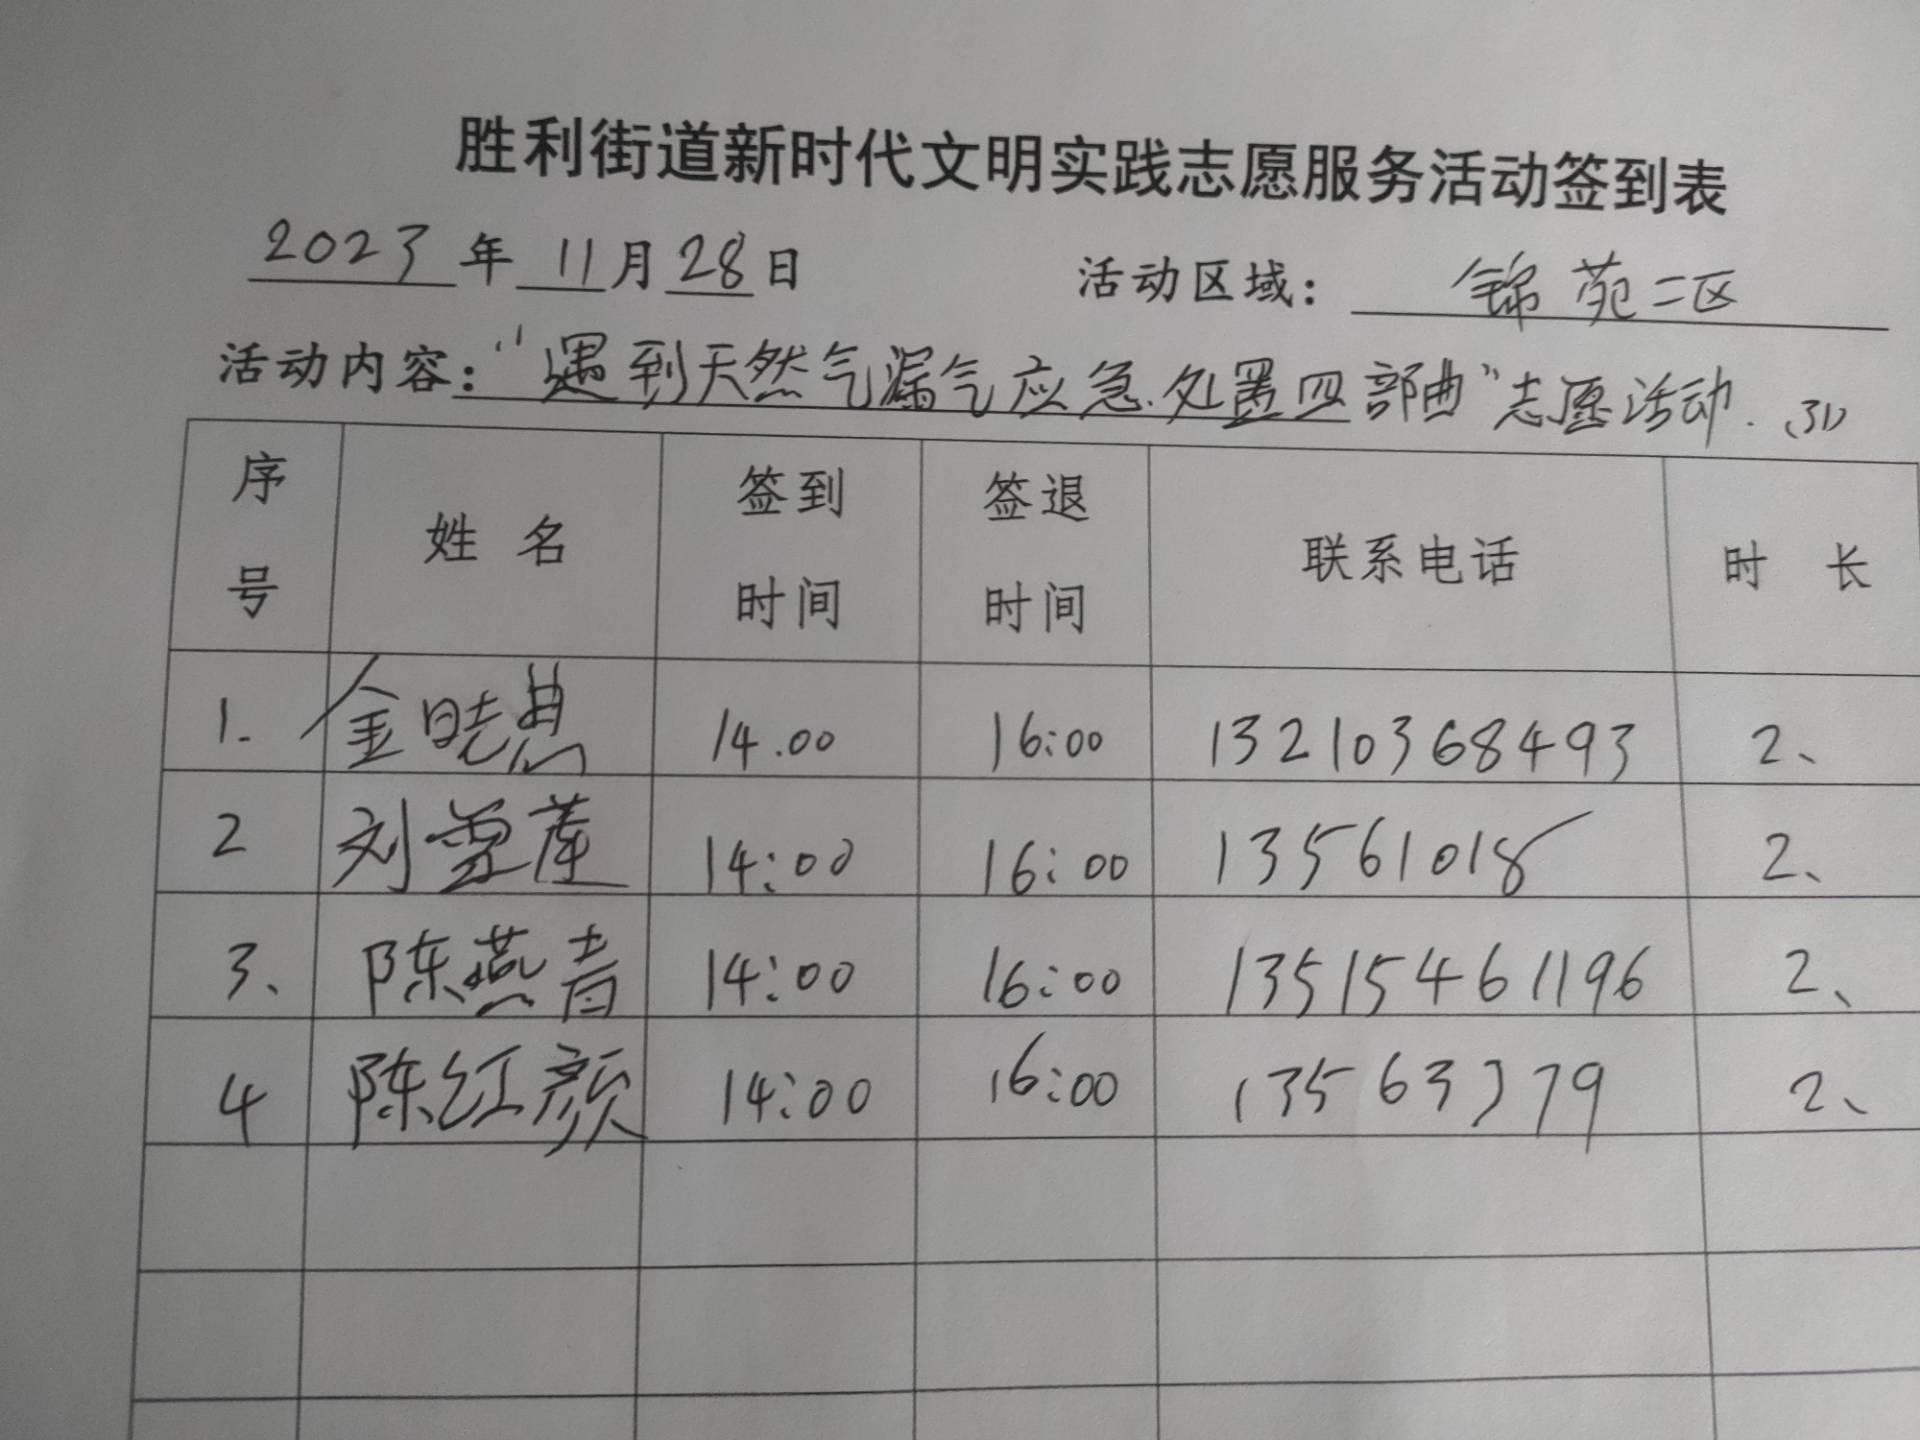 胜利街道新时代文明实践志愿服务活动签到表
2023 年 11 月 28 日 活动区域: 锦苑二区
活动内容: "遇到天然气漏气应急处置四部曲"志愿活动. (31)
序号 姓名 签到时间 签退时间 联系电话 时长
1. 金晓燕 14.00 16:00 13210368493 2、
2 刘雪莲 14:00 16:00 13561018 2、
3、 陈燕青 14:00 16:00 13515461196 2、
4 陈红颜 14:00 16:00 13563379 2、